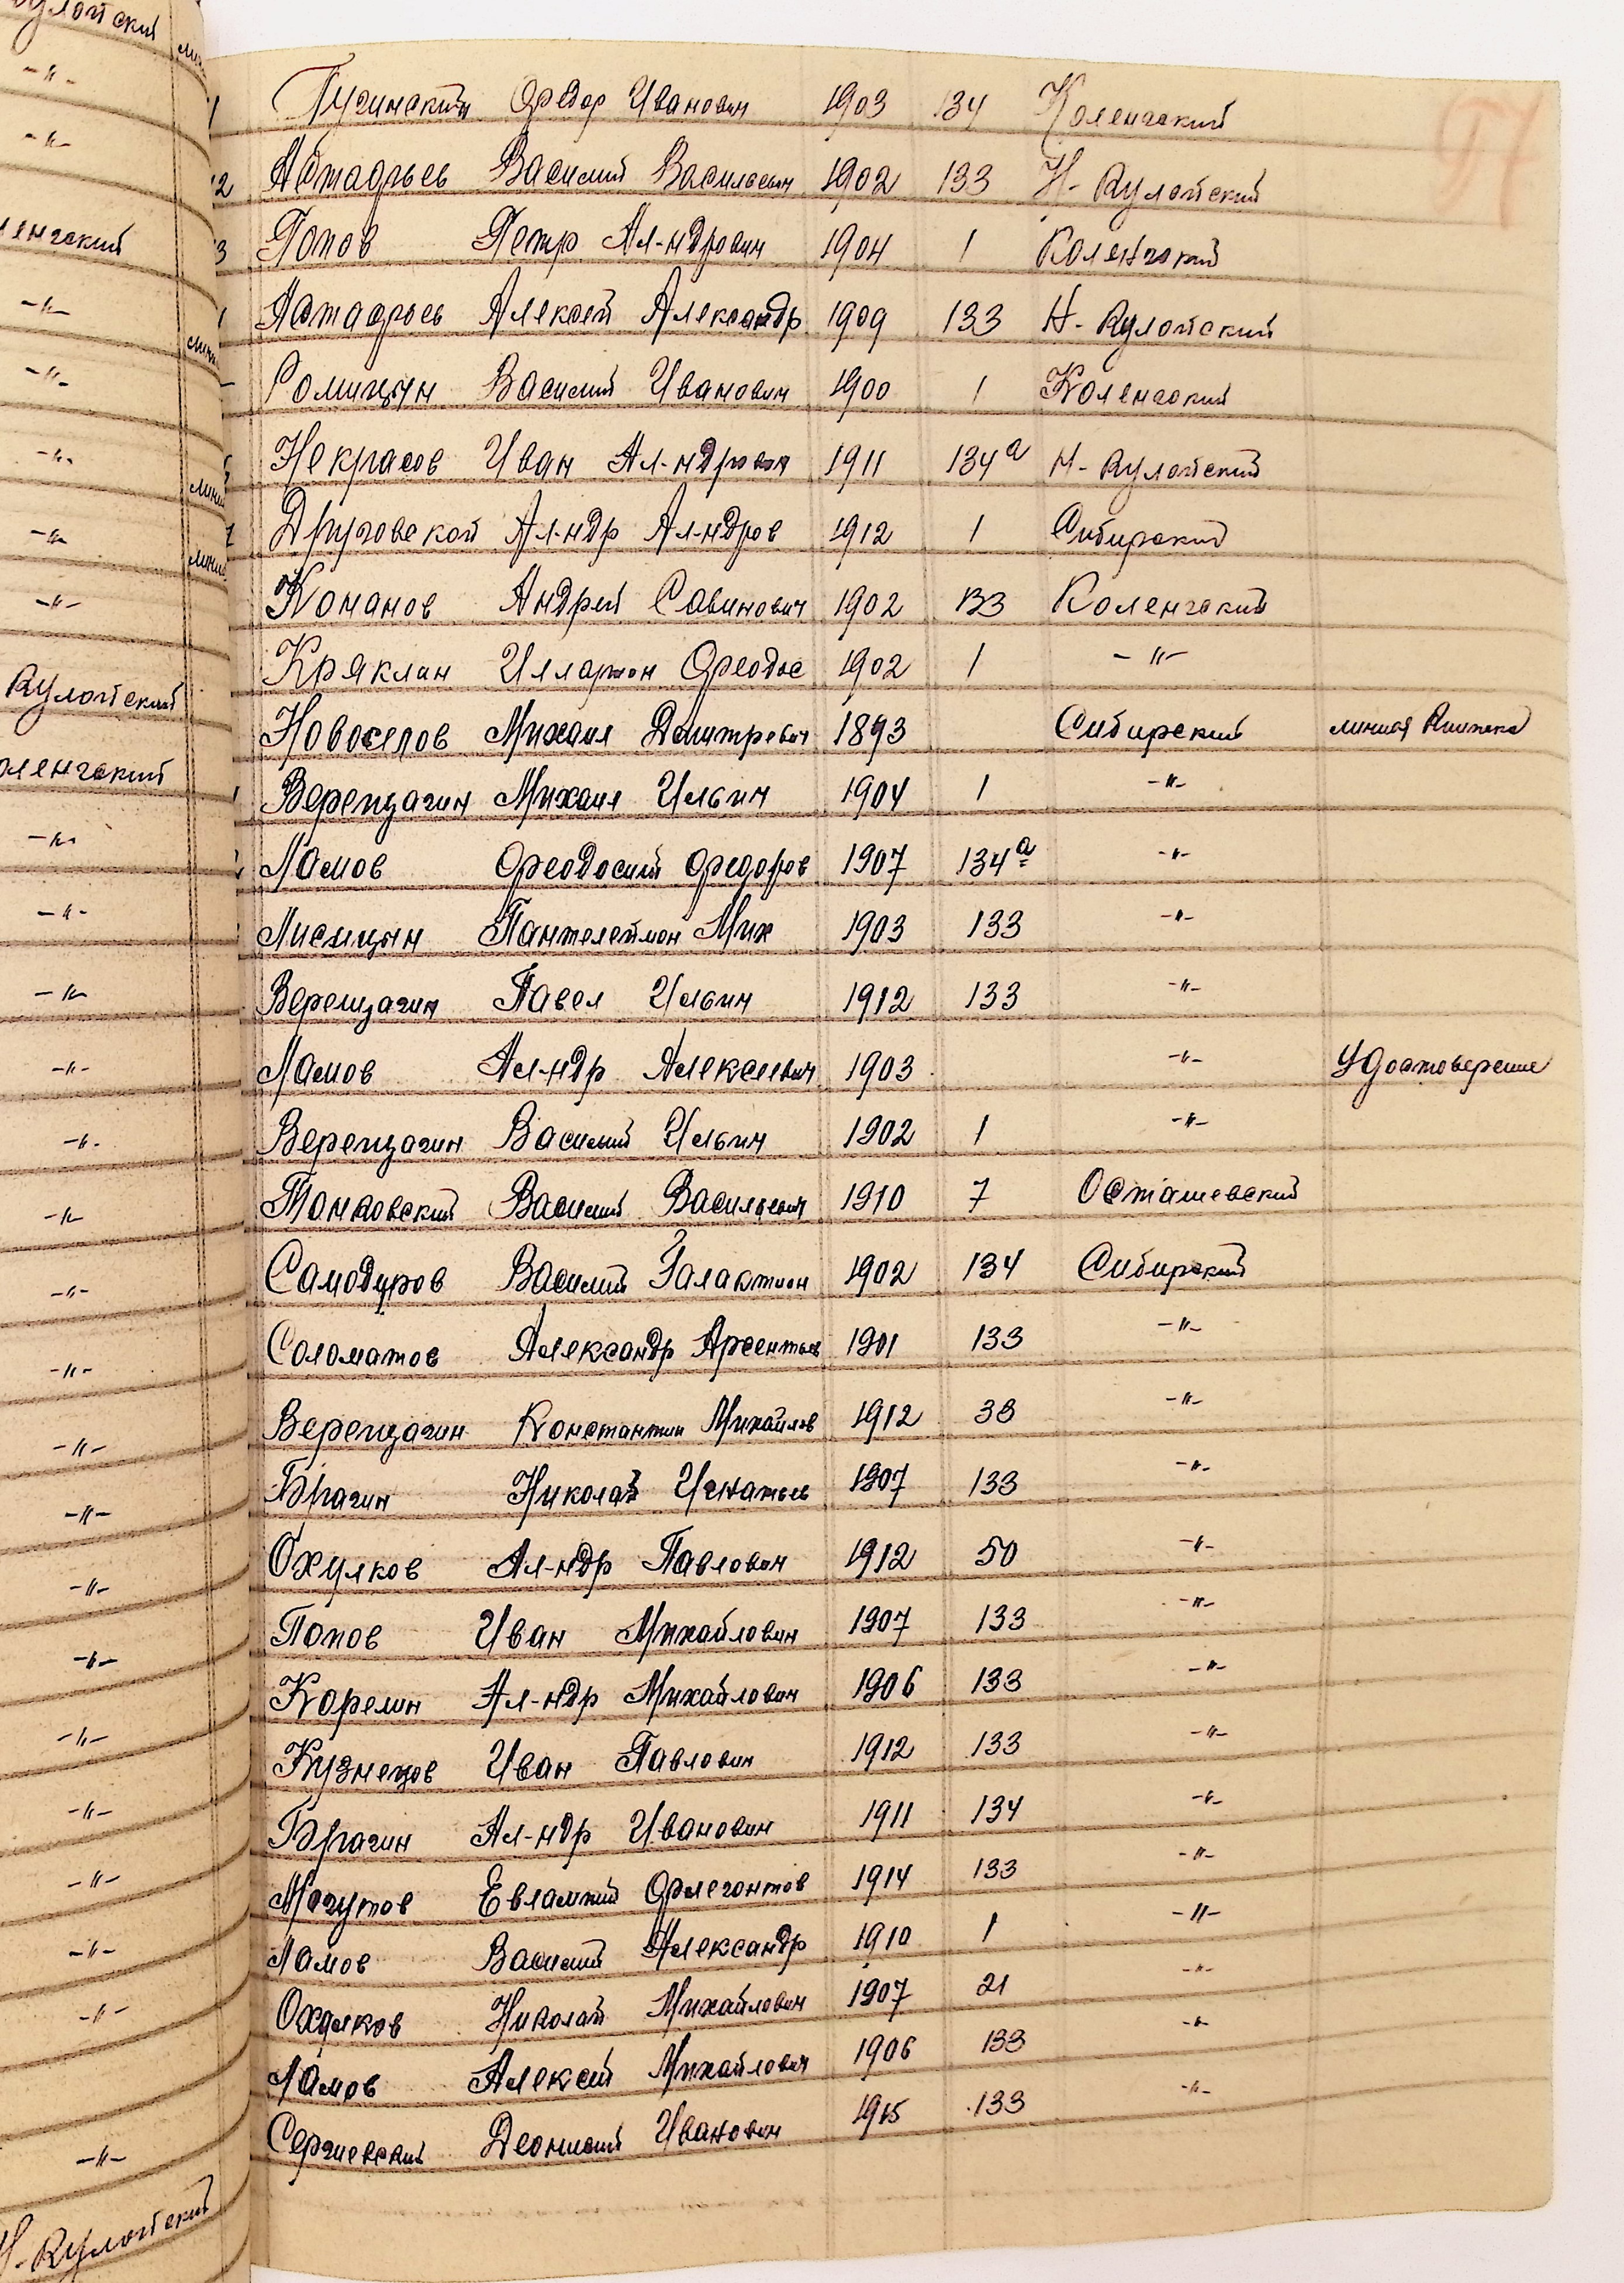 Пугинский Федор Иванович 1903 134 Коленгский
Астафьев Василий Васильевич 1902 133 Н-Кулойский
Попов Петр Ал-ндрович 1904 1 Коленгский
Астафьев Алексей Александр 1909 133 Н-Кулойский
Гомицын Василий Иванович 1900 1 Коленгский
Некрасов Иван Ал-ндрович 1911 134а Н-Кулойский
Друговской Ал-ндр Ал-ндров 1912 1 Сибирский
Кананов Андрей Савинович 1902 133 Коленгский
Кряклин Илларион Феодос 1902 1 -"-
Новоселов Михаил Дмитревич 1893 Сибирский линия
Верещагин Михаил Ильич 1904 1 -"-
Ламов Феодосий Федоров 1907 134а -"-
Лисицын Пантелеймон Мих 1903 133 -"-
Верещагин Павел Ильич 1912 133 -"-
Ламов Ал-ндр Алексеевич 1903 -"- Удостоверение
Верещагин Василий Ильич 1902 1 -"-
Тонковский Василий Васильевич 1910 7 Осташевский
Самодуров Василий Галактион 1902 134 Сибирский
Соломатов Александр Арсентьев 1901 133 -"-
Верещагин Константин Михайлов 1912 33 -"-
Брагин Николай Игнатьев 1907 133 -"-
Охулков Ал-ндр Павлович 1912 50 -"-
Попов Иван Михайлович 1907 133 -"-
Карелин Ал-ндр Михайлович 1906 133 -"-
Кузнецов Иван Павлович 1912 133 -"-
Брагин Ал-ндр Иванович 1911 134 -"-
Могутов Евлампий Флегонтов 1914 133 -"-
Ламов Василий Александр 1910 1 -"-
Охулков Николай Михайлович 1907 21 -"-
Ламов Алексей Михайлович 1906 133 -"-
Сергиевский Деонисий Иванович 1915 133 -"-